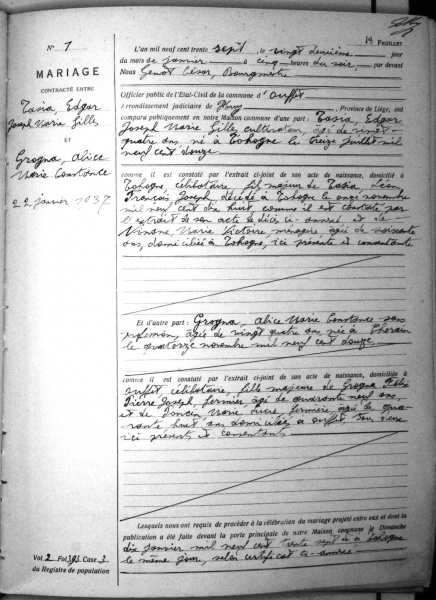 14 FEUILLET
N° 7
MARIAGE
CONTRACTÉ ENTRE
Tasia, Edgar
Joseph Marie Gilles
ET
Grogna, Alice
Marie Constance
22 janvier 1937
L'an mil neuf cent trente sept, le vingt deuxième jour
du mois de janvier à cinq heures du soir, par devant
Nous Genot César, Bourgmestre
Officier public de l'Etat-Civil de la commune d'Ouffet
Arrondissement judiciaire de Huy, Province de Liége, ont
comparu publiquement en notre Maison commune d'une part: Tasia, Edgar
Joseph Marie Gilles, cultivateur, âgé de vingt-
quatre ans, né à Tohogne le treize juillet mil
neuf cent douze
comme il est constaté par l'extrait ci-joint de son acte de naissance, domicilié à
Tohogne, célibataire fils majeur de Tasia, Léon
François Joseph, décédé à Tohogne le onze novembre
mil neuf cent dix huit comme il est constaté par
l'extrait de son acte de décès ci-annexé et de
Ninane Marie Victoire ménagère âgée de soixante
ans, domiciliée à Tohogne, ici présente et consentante
Et d'autre part: Grogna, Alice Marie Constance sans
profession, âgée de vingt quatre ans, née à
le quatorze novembre mil neuf cent douze
comme il est constaté par l'extrait ci-joint de son acte de naissance, domiciliée à
Ouffet célibataire fille majeure de Grogna
Pierre Joseph, fermier, âgé de quarante neuf ans,
et de Poncin Marie fermière âgée de qua-
rante huit ans, domiciliés à Ouffet tous deux
ici présents et consentants
Lesquels nous ont requis de procéder à la célébration du mariage projeté entre eux et dont la
publication a été faite devant la porte principale de notre Maison commune le Dimanche
dix janvier mil neuf cent trente sept et à Tohogne
le même jour, selon certificat ci-annexé
Vol 2 Fol 393 Case 3
du Registre de population